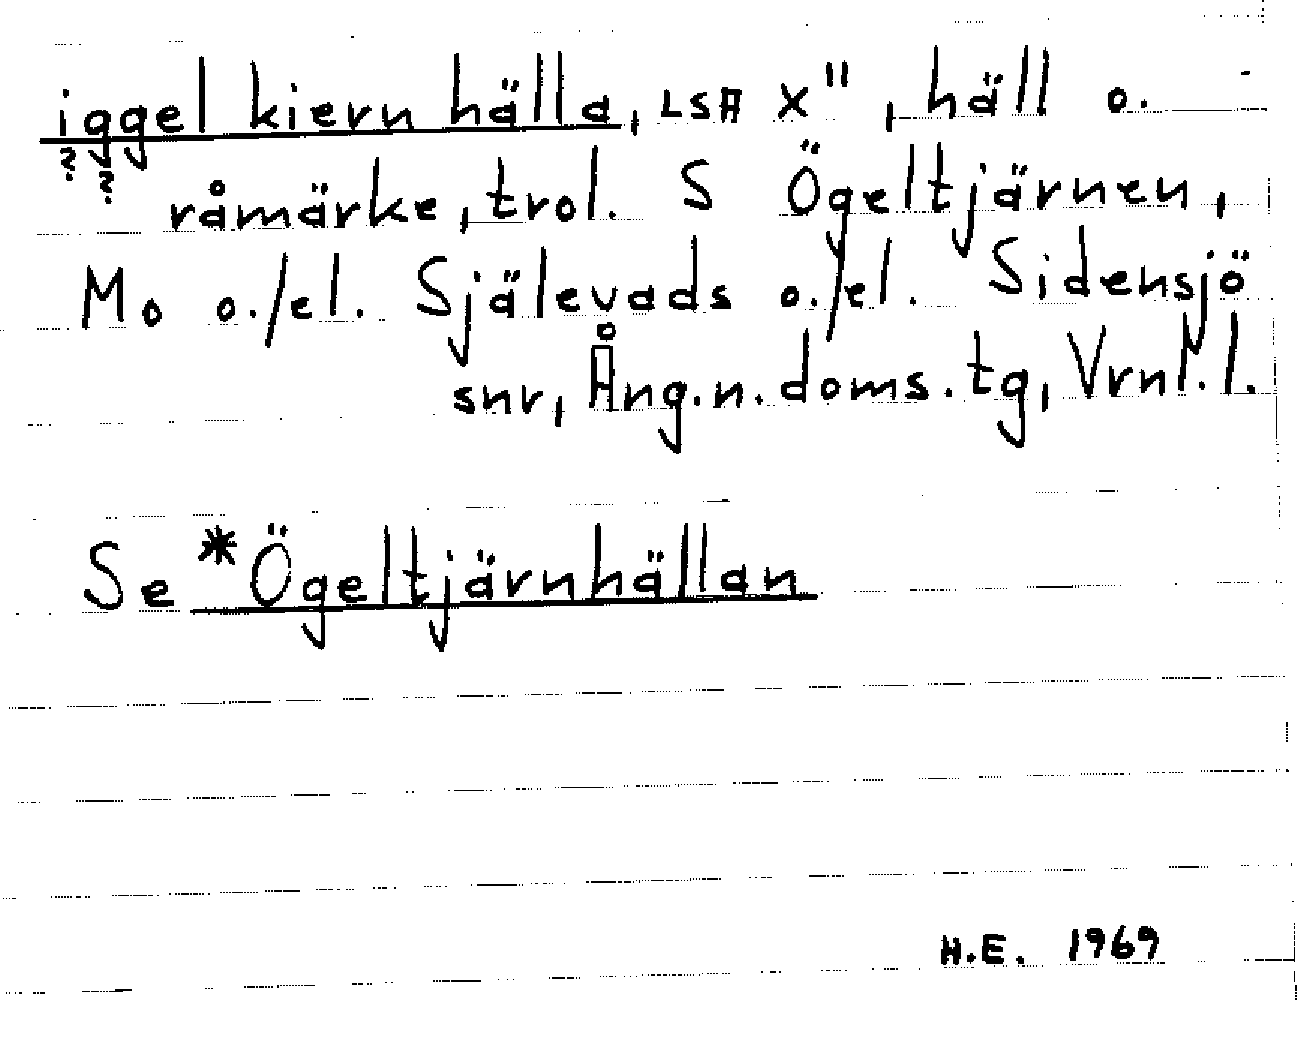 iggel kiern hälla, LSA X", häll o.
? ?
råmärke, trol. S Ögeltjärnen,
Mo o./el. Själevads o./el. Sidensjö
snr, Ång.n.doms.tg, Vrnl.l.
Se *Ögeltjärnhällan
H.E. 1969